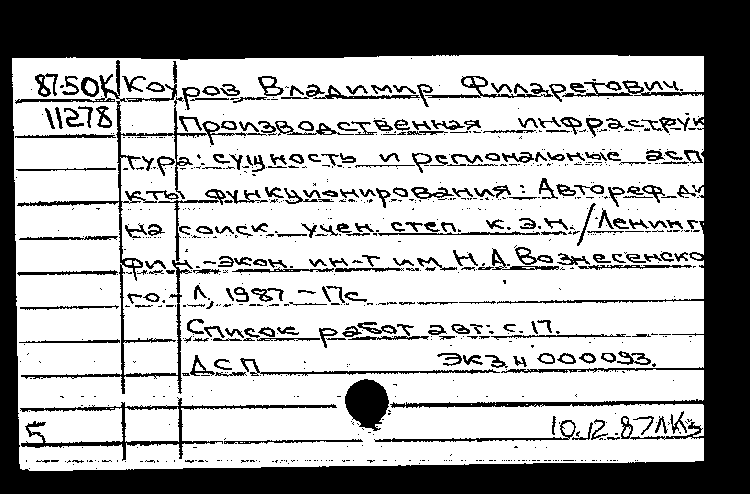 87-5ОК Коуров Владимир Филаретович.
11278 Производственная инфраструк
тура: сущность и региональные аспе
кты функционирования: Автореф ди
на соиск. учен. степ. к.э.н./Ленингр
фин.-экон. ин-т им Н.А.Вознесенско
го.-Л, 1987.-17с
Список работ авт: с.17.
ДСП ЭКЗ.N 000093.
5 10.12.87